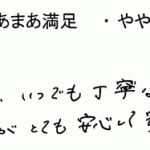 あまあ満足　・やや
、いつでも丁寧
がとても安心して